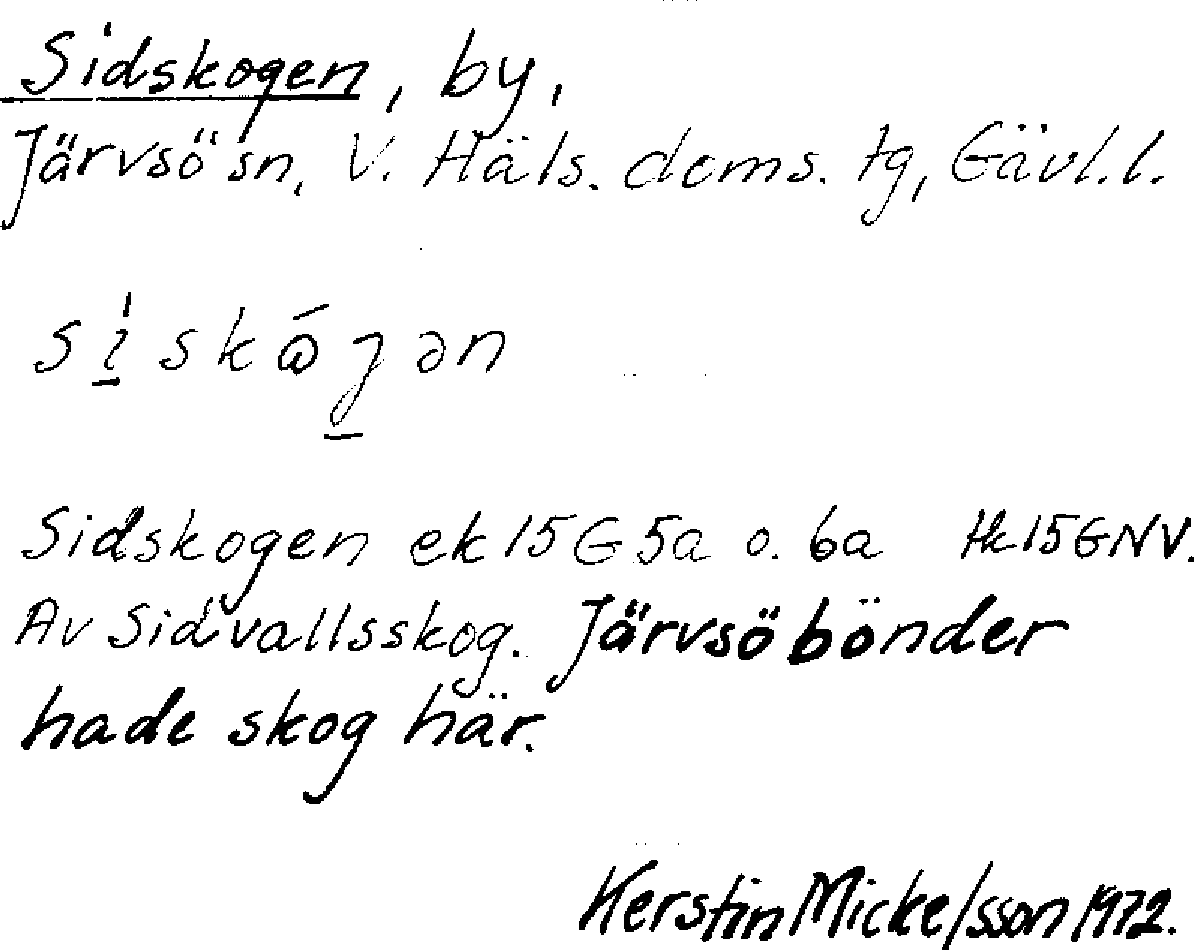 Sidskogen, by,
Järvsö sn, V. Häls. doms. tg, Gävl. l.
Sidskogen ek 15G 5a o. 6a Hk 15G NV.
Av Sidvallsskog. Järvsöbönder
hade skog här.
Kerstin Mickelsson 1972.